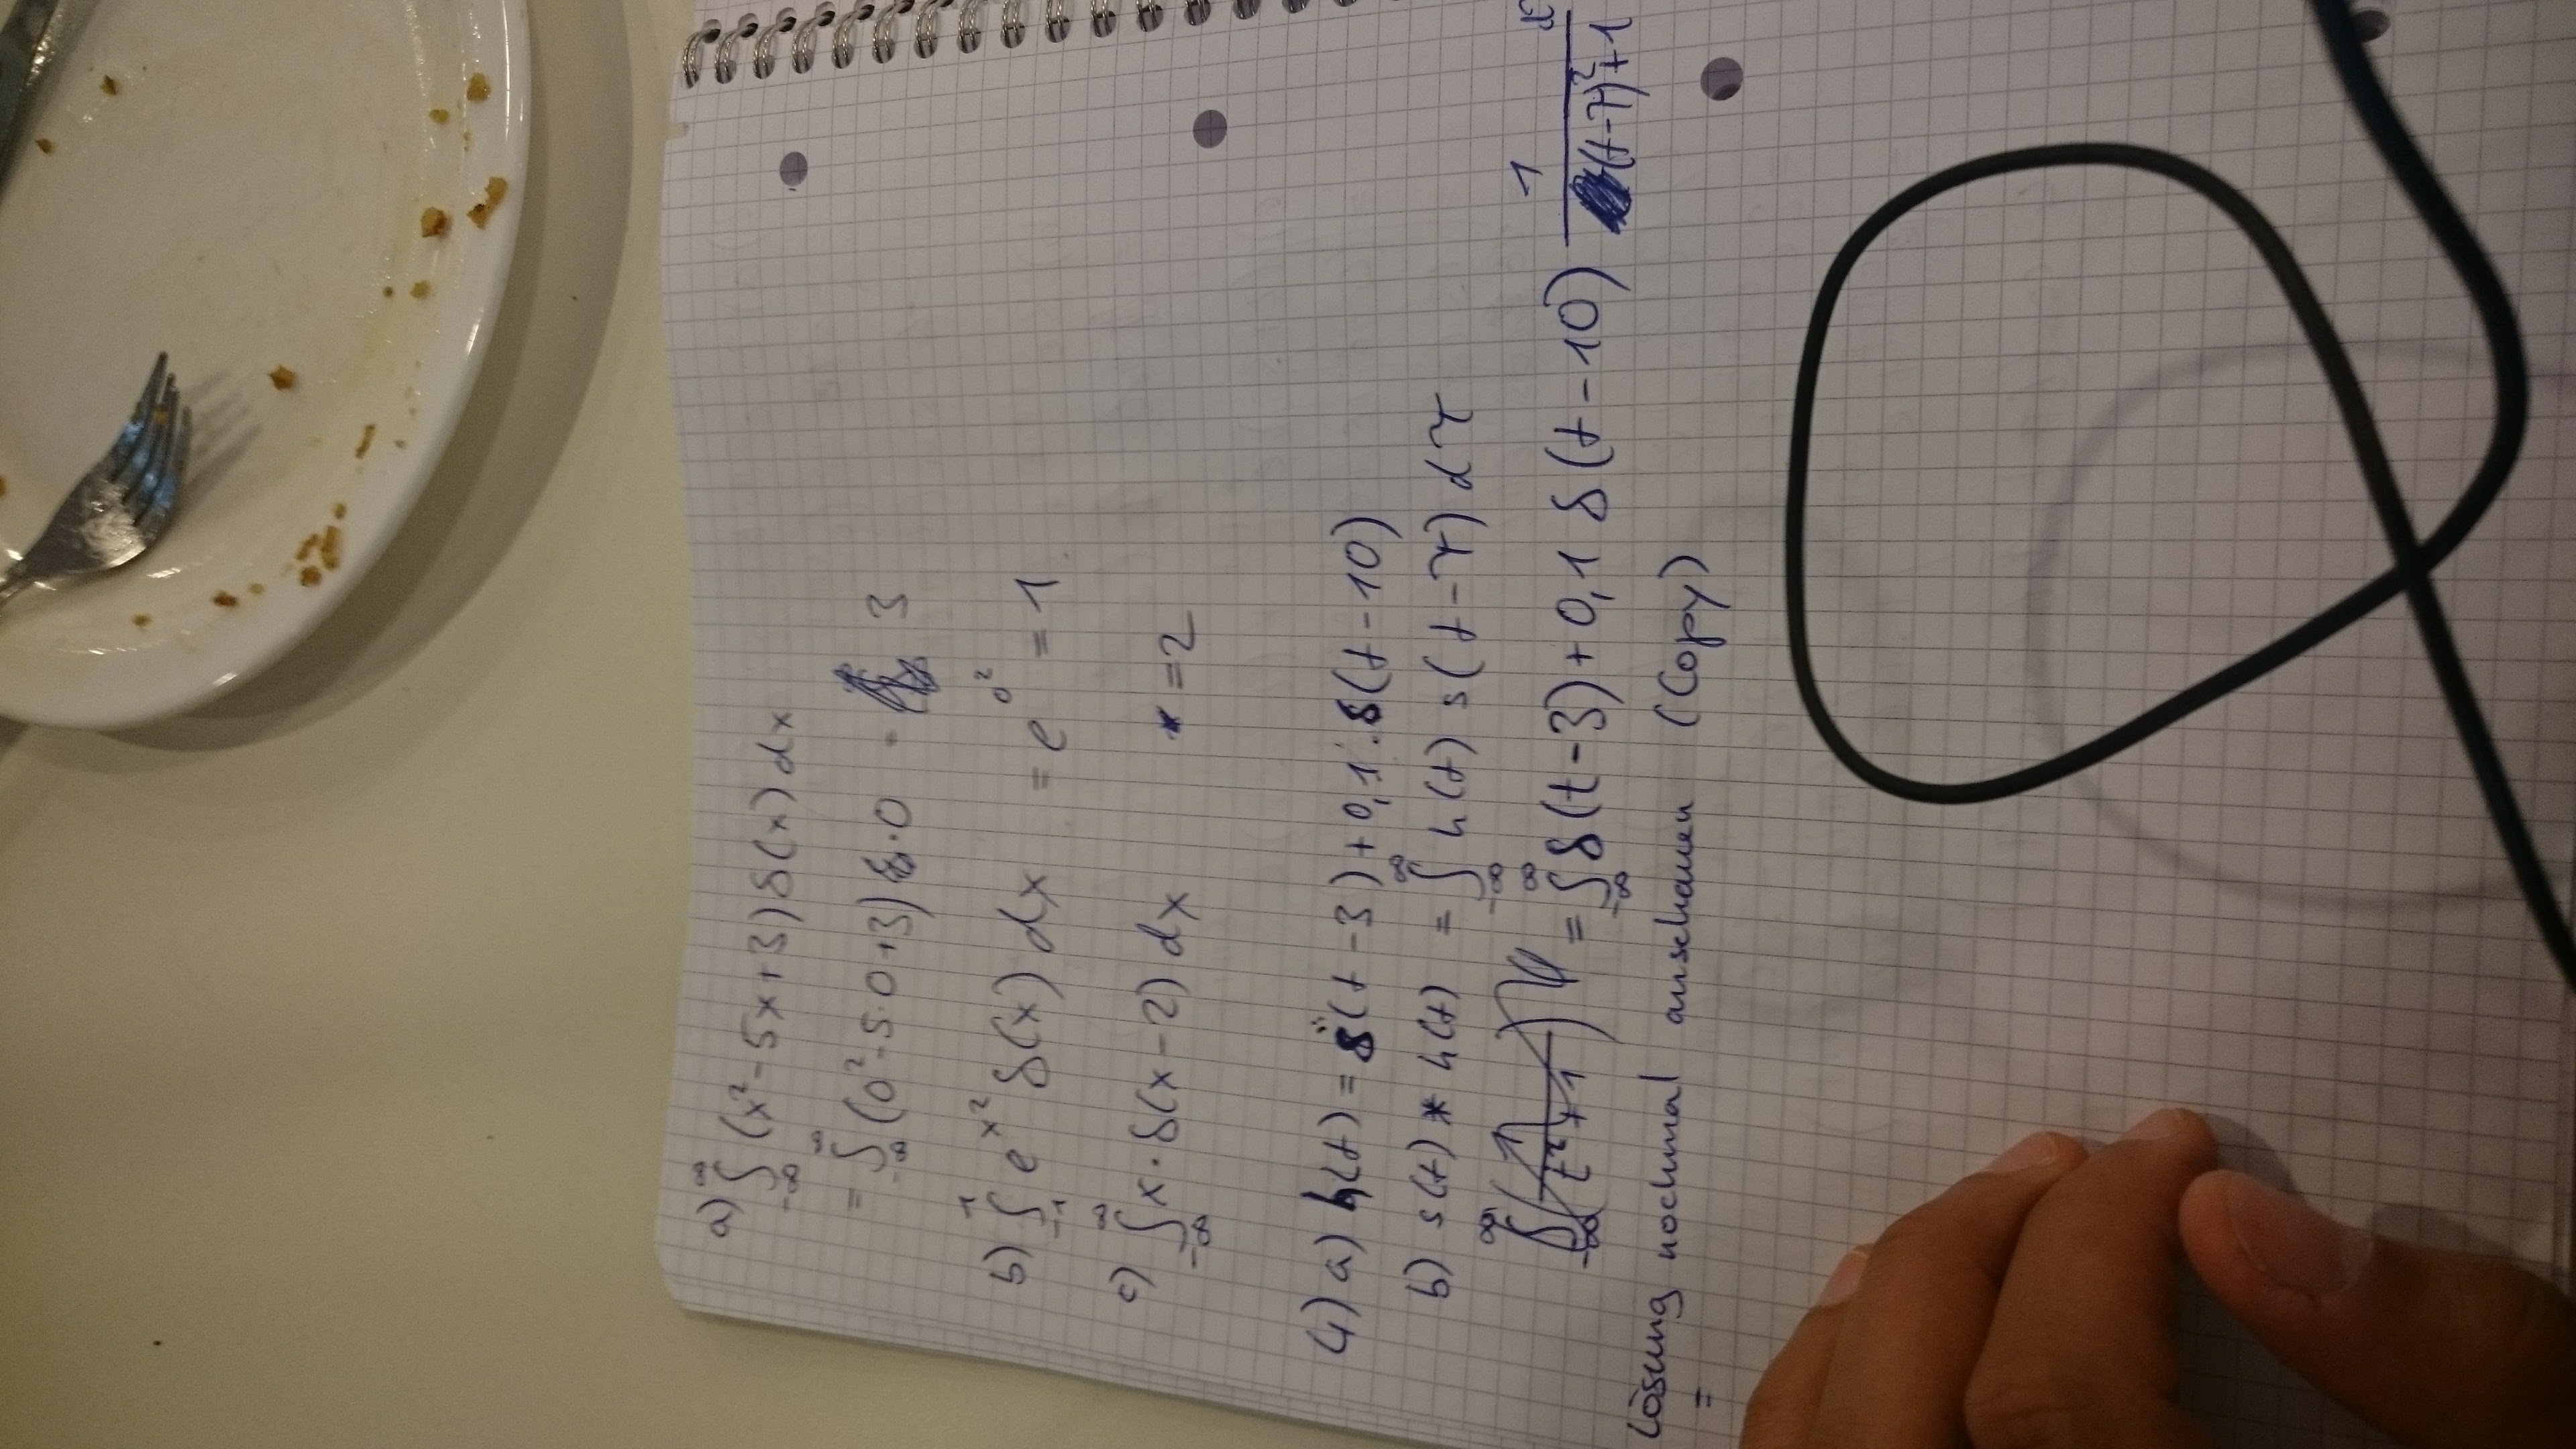 a) ∫_{-∞}^{∞} (x² - 5x + 3) δ(x) dx
= ∫_{-∞}^{∞} (0² - 5·0 + 3) · 0 = 3
b) ∫_{-1}^{1} e^{x²} δ(x) dx = e^{0²} = 1
c) ∫_{-∞}^{∞} x · δ(x - 2) dx = 2
4) a) h(t) = δ(t - 3) + 0,1 · δ(t - 10)
b) s(t) * h(t) = ∫_{-∞}^{∞} h(t) s(t - τ) dτ
= ∫_{-∞}^{∞} δ(t - 3) + 0,1 δ(t - 10) 1/((t - τ)² + 1)
Lösung nochmal anschauen (Copy)
=